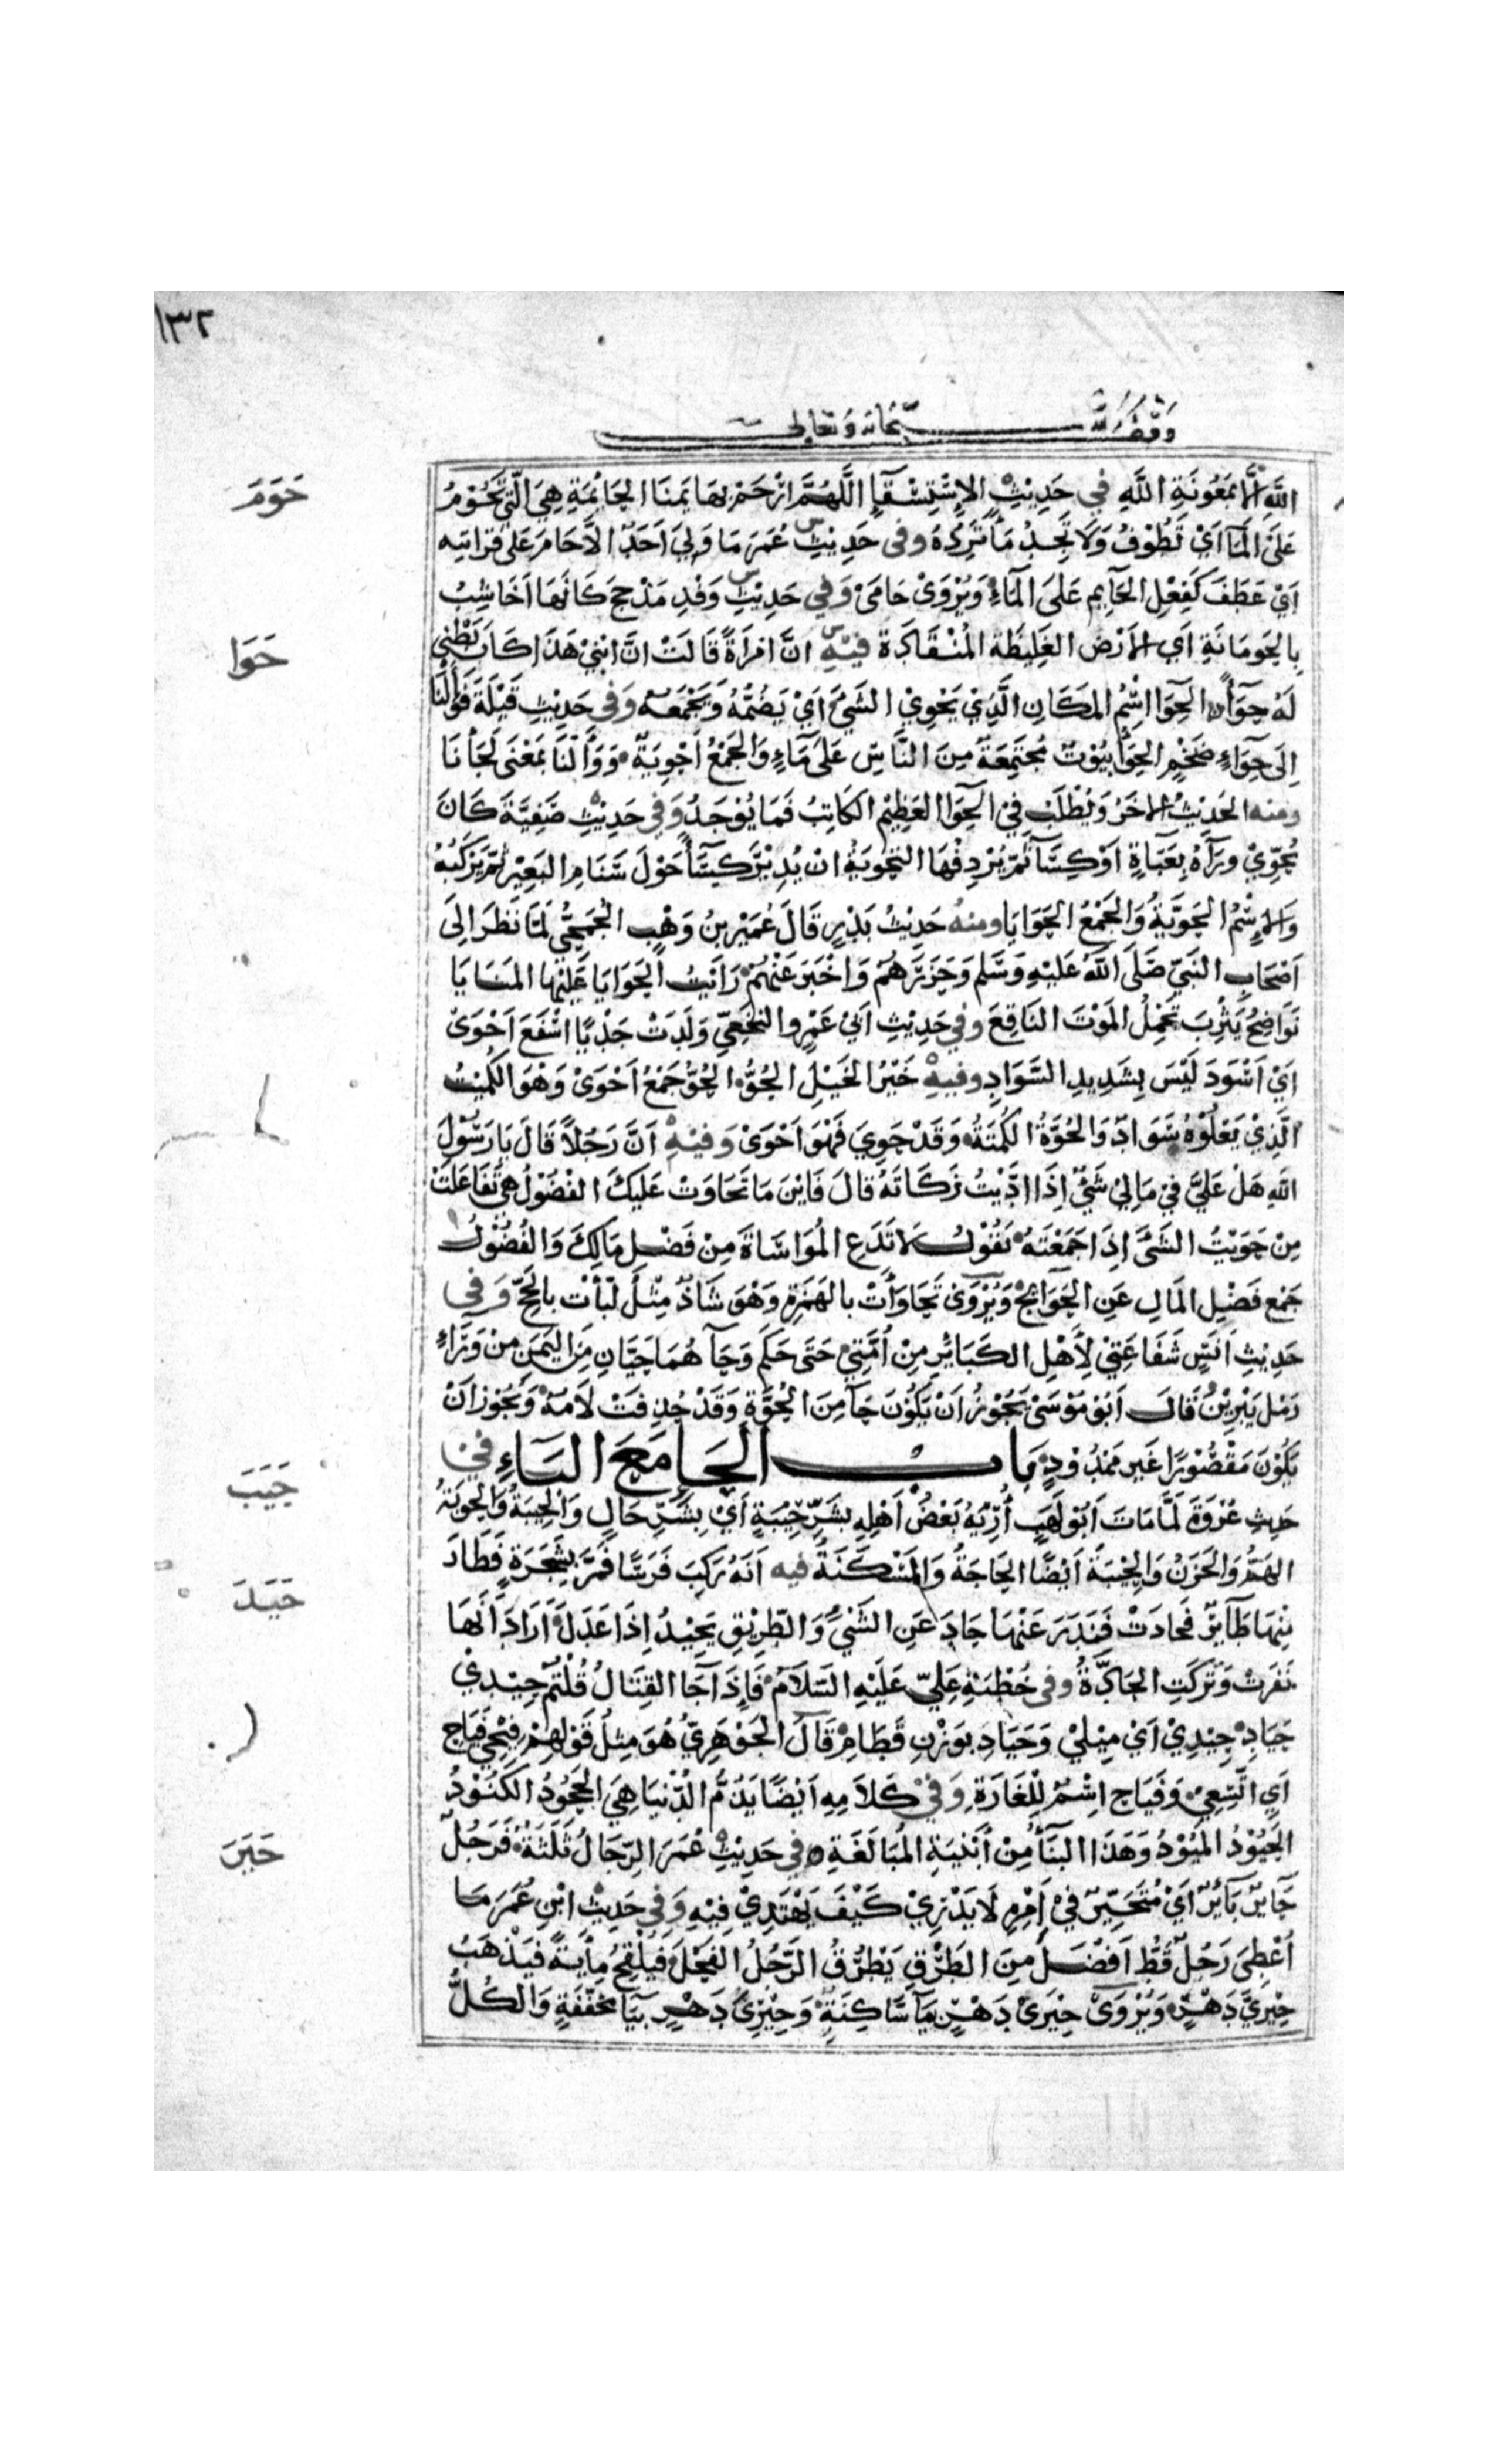 ١٣٢
وقف لله سبحانه وتعالى
اللهِ الا بمَعُونَةِ اللَّهِ في حَدِيْثِ الاِسْتِسْقَآءِ اللَّهُمَّ ارْحَمْ بَهَايمَنَا الحَايْمَةِ هِيَ الَّتِي تَحُوْمُ
حَوَمَ
عَلَى المَآ اَيْ تَطُوْفُ وَلَا تَجِدُ مَآ تَرِدُهُ وفى حَدِيْثِ عُمَرَ مَا وَلِيَ اَحَدٌ الاَّ حَامَ عَلى قَرابَتِه
اَيْ عَطَفَ كَفِعْلِ الحَآيِمِ عَلىَ المَآءِ وَيُرْوَىْ حَامَىْ وَفي حَدِيْثِ وَفْدِ مَذْحِجَ كَاَنَّهَا اَخَاشِبُ
بِالحَوْمَانَةِ اَيِ الاَرْضِ الغَلِيْظَة المُنْقَادَة فيْهِ انَّ امْرَاَةً قَالَتْ انَّ ابْنِيْ هَذَا كَانَ بَطْنِي
حَوَا
لَهُ حِوَآءً الحِوَا اسْمُ المَكَانِ الَّذِيْ يَحْوِيْ الشَّيْءَ اَيْ يَضُمُّهُ وَيَجْمَعُه وَفي حَدِيْثِ قَيْلَةَ فَوَأَلْنَا
اِلَى حِوَآءٍ ضَخْمٍ الحِوَآ بُيُوْتٌ مُجْتَمِعَةٌ مِنَ النَّاسِ عَلَى مَآءٍ وَالجَمْعُ اَحْوِيَةٌ وَوَأَلْنَا بمَعْنَى لَجَأنَا
ومنه الحَدِيْثُ الاخَرُ وَيُطْلَبُ فِيْ الحِوَا العَظِيْمِ الكَاتِبُ فَمَا يُوْجَدُ وَفي حَدِيْثِ صَفِيَّةَ كَانَ
يُحَوِّيْ ورَآهُ بِعَبَاءَةٍ اَوْ كِسَآءٍ ثُمَّ يُرْدِفُهَا التَّحْوِيَةُ انْ يُدِيْرَ كِسَآءً حَوْلَ سَنَامِ البَعِيْرِ ثُمَّ يَرْكَبُهُ
وَالاِسْمُ الحَوِيَّةُ وَالجَمْعُ الحَوَايَا ومنهُ حَدِيْثُ بَدْرٍ قَالَ عُمَيْر بنُ وَهْبٍ الجُمَحِيُّ لَمَّا نَظَرَ اِلَى
اَصْحَابِ النَّبيّ صَلَى اللهُ عَلَيْهِ وَسَلم وَحَزَرَهُمْ وَاخْبَرَ عَنْهُمْ رَاَيْتُ الحَوَايَا عَلَيْهَا المَنَايَا
نَوَاضِحُ يَثْرِبَ تَحْمِلُ المَوْتَ النَّاقِعَ وفي حَدِيْثِ ابيْ عَمْرٍو النَّخَعِيِّ وَلَدَتْ جَدْيًا اسْفَعَ اَحْوَى
اَيْ اَسْوَدَ لَيْسَ بِشَدِيدِ السَّوَادِ وفيهِ خَيْرُ الخَيْلِ الحُوُّ الحُوُّ جَمْعُ اَحْوَى وَهْوَ الكُمَيْتُ
الَّذِيْ يَعْلُوْهُ سَوَادٌ وَالحُوَّةُ الكُمْتَةُ وَقَدْ حَوِيَ فَهْوَ اَحْوَىْ وَفيْهِ اَنَّ رَجُلاً قَالَ يَا رَسُوْلَ
اللهِ هَلْ عَلَيَّ فيْ مَالِيْ شَيْءٌ اِذَا ادَّيْتُ زَكَاتَهُ قالَ فَايْنَ مَا تَحَاوَتْ عَلَيكَ الفُضُوْلُ هِيَ تَفَاعَلَتْ
مِنْ حَوَيْتُ الشَيْءَ اِذَا جَمَعْتَهُ يَقُوْلُ لاَ تَدَعِ المُوَاسَاةَ مِنْ فَضْلِ مَالِكَ وَالفُضُوْلُ
جَمع فَضْلِ المَالِ عَنِ الحَوَائِجْ وَيُرْوَى تَحَاوَأَتْ بالهَمْزةِ وَهْوَ شَاذٌّ مِثْلُ لَبَّأتُ بالحَجّ وَفي
حَدِيْثِ اَنَسٍ شَفَاعَتِيْ لِأَهْلِ الكَبَائِرِ مِنْ اُمَّتِيْ حَتَى حَكَم وَحَآ هُمَا حَيَّانِ مِنَ اليَمَنِ مِنْ وَرَآءِ
رَمْلِ يَبْرِيْنَ قَالَ اَبُوْ مُوْسَىْ يَجُوْزُ اَنْ يَكُوْنَ حَآ مِنَ الحُوَّةِ وَقَدْ حُذِفَتْ لَامُهُ وَيَجُوْز اَنْ
يَكُوْنَ مَقْصُوْرًا غَير مَمْدُوْدٍ بَابُ الحَاءِ مَعَ اليَاءِ في
حَيَبَ
حَدِيثِ عُرْوَةَ لَمَّا مَاتَ اَبُو لَهَبٍ اُرِيْهُ بَعْضُ اَهْلِهِ بشَرِّ حِيْبَةٍ اَيْ بِشَرِّ حَالٍ وَالحِيْبَةُ وَالحَوْبَةُ
الهَمُّ وَالحَزَنُ وَالحِيْبَةُ اَيْضًا الحَاجَةُ وَالمَسْكَنَةُ فيه اَنَّهُ رَكِبَ فَرَسًا فَمَرَّ بِشَجَرَةٍ فَطَارَ
حَيَدَ
مِنْهَا طَآئِرٌ فَحَادَتْ فَنَدَرَ عَنْهَا حَادَ عَنِ الشَّيْءِ وَالطَّرِيْقِ يَحِيْدُ اِذَا عَدَلَ اَرَادَ اَنَّهَا
نَفَرَتْ وَتَركَتِ الجَادَّةُ وفى خُطْبَةِ عَلِيّ عَلَيْهِ السَّلاَمُ فَإِذَا جَآ القِتَالُ قُلْتُمْ حِيْدِيْ
حَيَادِ حِيْدِيْ اَيْ مِيْلِيْ وَحَيَادِ بوَزْنِ قَطَامِ قَالَ الجَوْهَرِيُّ هُوَ مِثْلُ قَوْلِهِمْ فِيْحِي فَيَاحِ
اَيِ اتَّسِعِيْ وَفَيَاحِ اسْمٌ لِلْغَارَةِ وَفيْ كَلاَمِهِ اَيْضًا يَذُمُّ الدُّنْيَا هِيَ الجَحُوْدُ الكَنُوْدُ
الحَيُوْدُ المَيُوْدُ وَهَذَا البِنَآءُ مِنْ اَبْنِيَةِ المُبَالَغَةِ وفي حَدِيْثِ عُمَرَ الرِّجَالُ ثَلَثَةٌ فَرَجُلٌ
حَيَرَ
حَآيِرٌ بَآيِرٌ اَيْ مُتَحَيِّرٌ فيْ اَمْرِهِ لَا يَدْرِيْ كَيْفَ يَهْتَدِيْ فِيْهِ وَفي حَدِيْثِ ابْنِ عُمَرَ مَا
اُعْطِيَ رَجُلٌ قَطُّ اَفْضَلَ مِنَ الطَرْقِ يَطْرُقُ الرَّجُلُ الفَحْلَ فَيُلْقِحُ مِايَةً فَيَذْهَبُ
حِيْرِيَّ دَهْرٍ وَيُرْوَىْ حِيْرِىْ دَهْرٍ بيَآ سَاكِنَةٍ وَحِيْرِىَ دَهْرٍ بيَآ مخَفّفَةٍ وَالكُلُّ